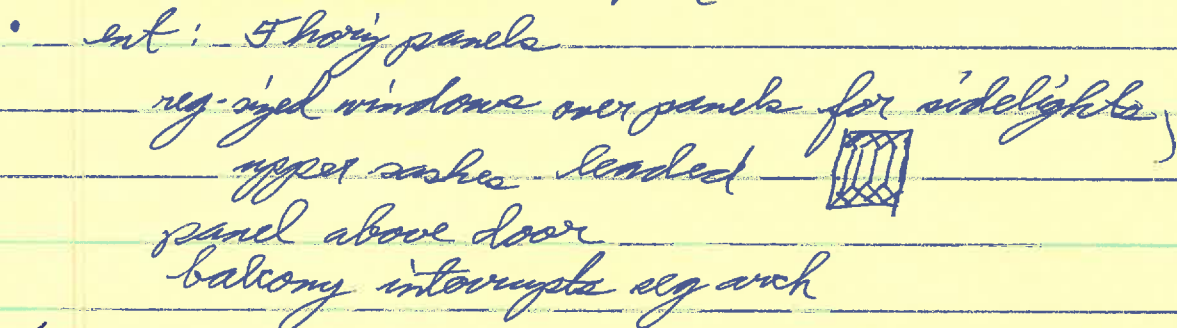 • ent: 5 horiz panels
reg-sized windows over panels for sidelights,
upper sashes - leaded
panel above door
balcony interrupts seg arch